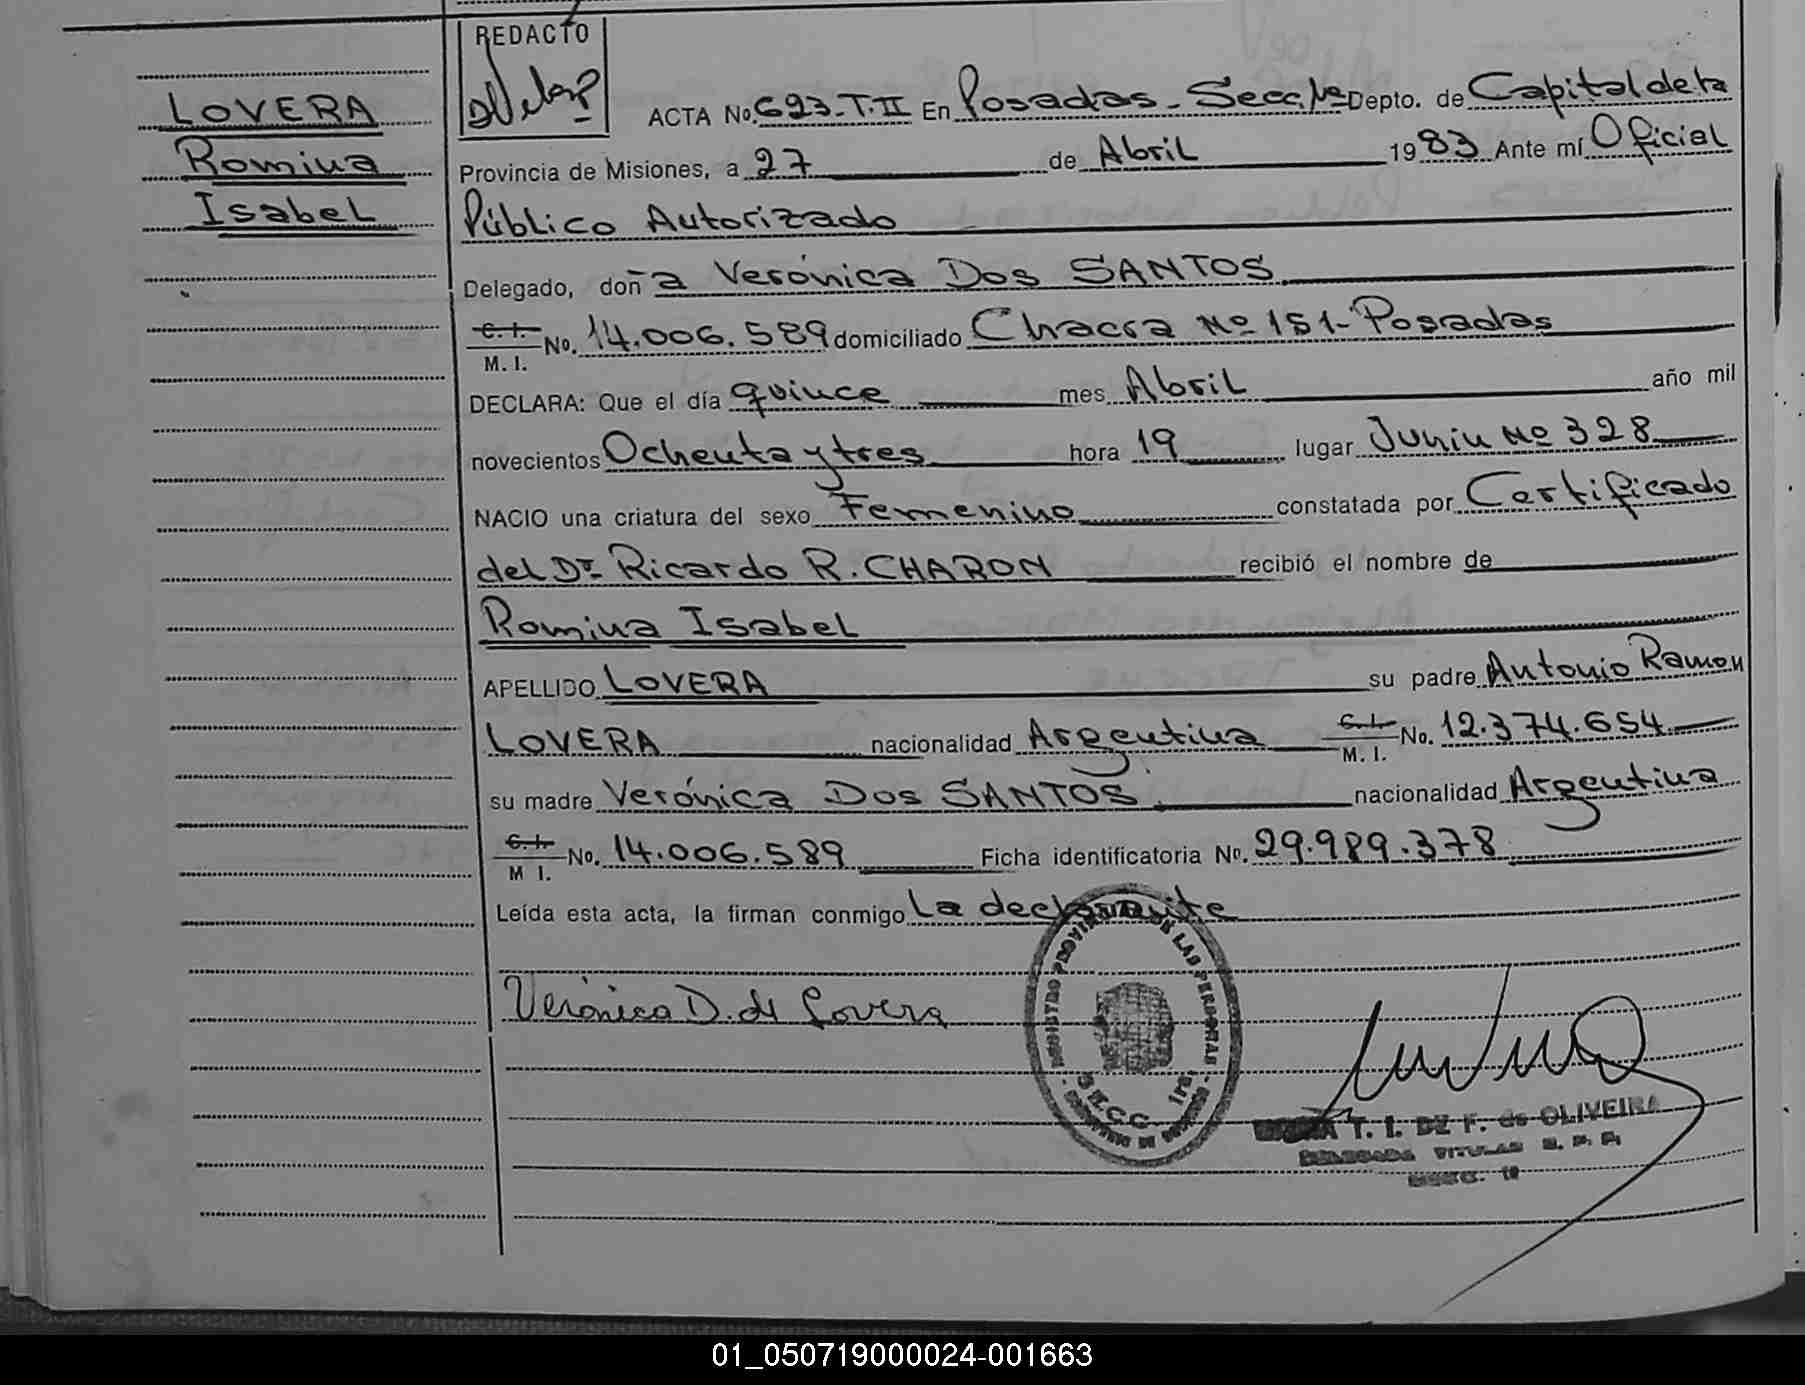 LOVERA
Romina
Isabel
REDACTO
ACTA No. 623-T.II En Posadas - Secc. 1ª Depto. de Capital de la
Provincia de Misiones, a 27 de Abril 1983 Ante mí Oficial
Público Autorizado
Delegado, doña Verónica Dos SANTOS
C. I.
M. I. No. 14.006.589 domiciliado Chacra Nº 151 - Posadas
DECLARA: Que el día quince mes Abril año mil
novecientos Ochenta y tres hora 19 lugar Junin Nº 328
NACIO una criatura del sexo Femenino constatada por Certificado
del Dr. Ricardo R. CHARON recibió el nombre de
Romina Isabel
APELLIDO LOVERA su padre Antonio Ramon
LOVERA nacionalidad Argentina C. I. M. I. No. 12.374.654
su madre Verónica Dos SANTOS. nacionalidad Argentina
C. I. M I. No. 14.006.589 Ficha identificatoria Nº. 29.989.378
Leída esta acta, la firman conmigo La declarante
Verónica D. de Lovera
REGISTRO PROVINCIAL DE LAS PERSONAS
T. I. DZ F. de OLIVEIRA
DELEGADA TITULAR R. P. P.
SECC. 1ª
01_050719000024-001663